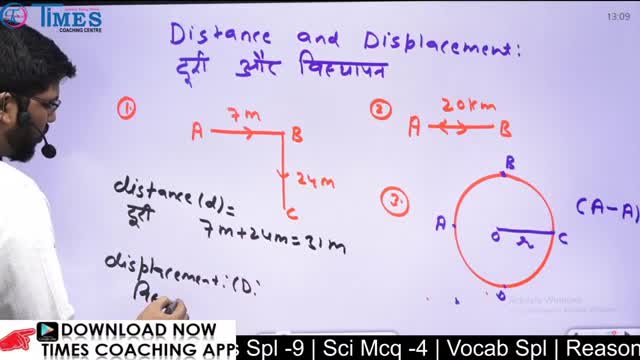 TIMES
COACHING CENTRE
13:09
Distance and Displacement:
दूरी और विस्थापन
1. 7m
A B
24m
C
2. 20km
A B
distance (d) =
दूरी 7m+24m=31m
displacement: (D:
वि
3. B
A O r C
D
(A-A)
Activate Windows
DOWNLOAD NOW
TIMES COACHING APP
s Spl -9 | Sci Mcq -4 | Vocab Spl | Reason